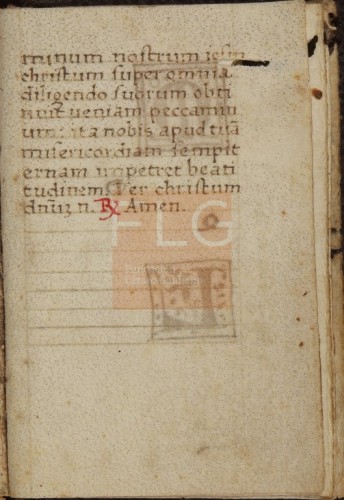 minum nostrum iesum
christum super omnia
diligendo suorum obti
nuit veniam peccamin
um: ita nobis apud tuā
misericordiam sempit
ernam impetret beati
tudinem. Per christum
dñuȝ n. ℞ Amen.
FLG